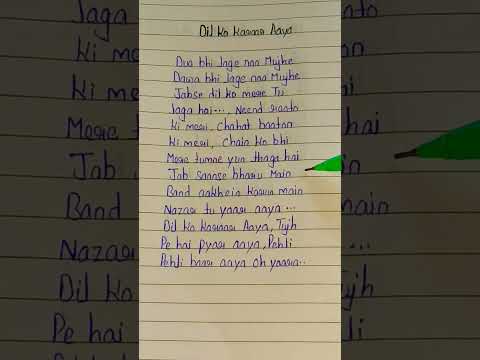 Dil Ko Karaar Aaya
Dua bhi lage naa Mujhe
Dawa bhi lage naa Mujhe
Jabse dil ko mere Tu
laga hai...., Neend raato
Ki meri, Chahat baaton
Ki meri, Chain Ko bhi
Mere tumne yun thaga hai
Jab saanse bharu Main
Band aakhein karu main
Nazar tu yaar aaya ...
Dil Ko Karaar Aaya, Tujh
Pe hai pyaar aaya, Pehli
Pehli baar aaya oh yaara..